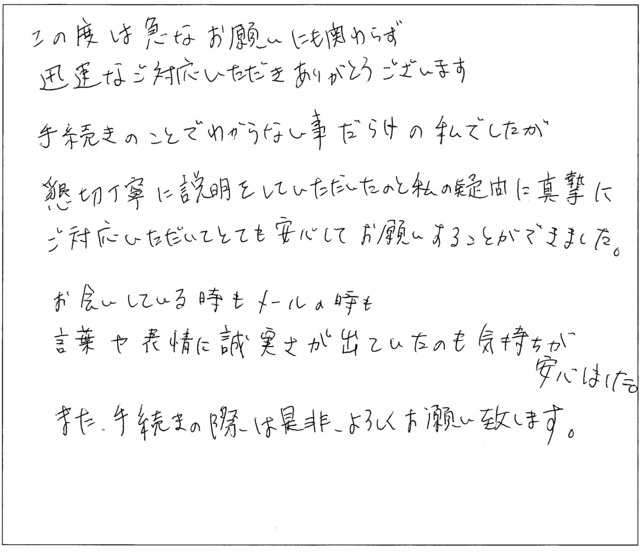 この度は急なお願いにも関わらず
迅速なご対応いただきありがとうございます
手続きのことでわからない事だらけの私でしたが
懇切丁寧に説明をしていただいたのと私の疑問に真摯に
ご対応いただいてとても安心してお願いすることができました。
お会いしている時もメールの時も
言葉や表情に誠実さが出ていたのも気持ちが
安心しました。
また、手続きの際は是非、よろしくお願い致します。